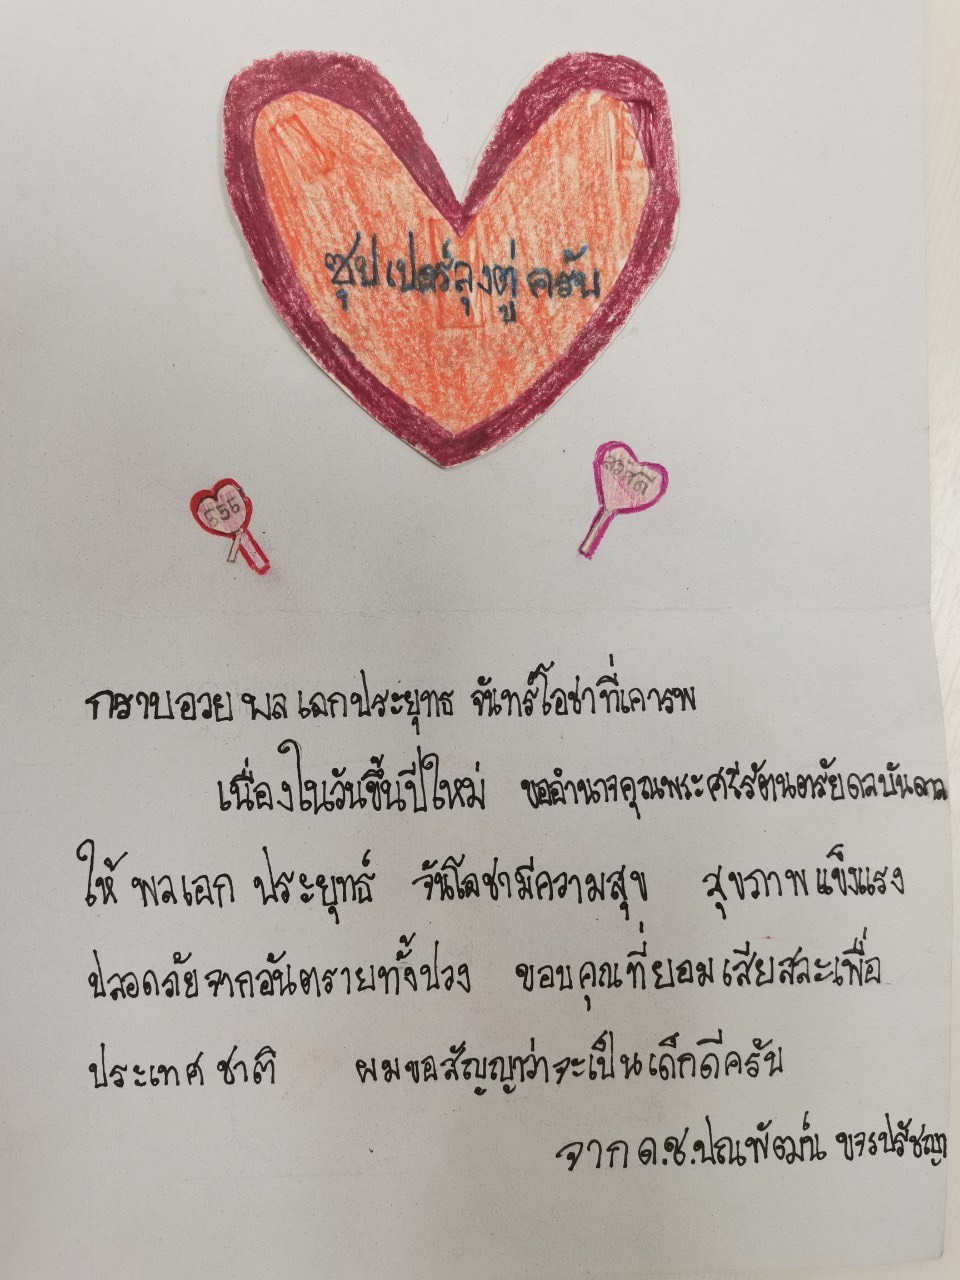 ซุปเปอร์ลุงตู่ครับ
555
สวัสดี
กราบอวย พลเอกประยุทธ จันทร์โอชาที่เคารพ
เนื่องในวันขึ้นปีใหม่ ขออำนาจคุณพระศรีรัตนตรัยดลบันดาล
ให้ พลเอก ประยุทธ์ จันโอชามีความสุข สุขภาพแข็งแรง
ปลอดภัยจากอันตรายทั้งปวง ขอบคุณที่ยอมเสียสละเพื่อ
ประเทศชาติ ผมขอสัญญาว่าจะเป็นเด็กดีครับ
จาก ด.ช.ปณพัฒน์ ขจรปรัชญา